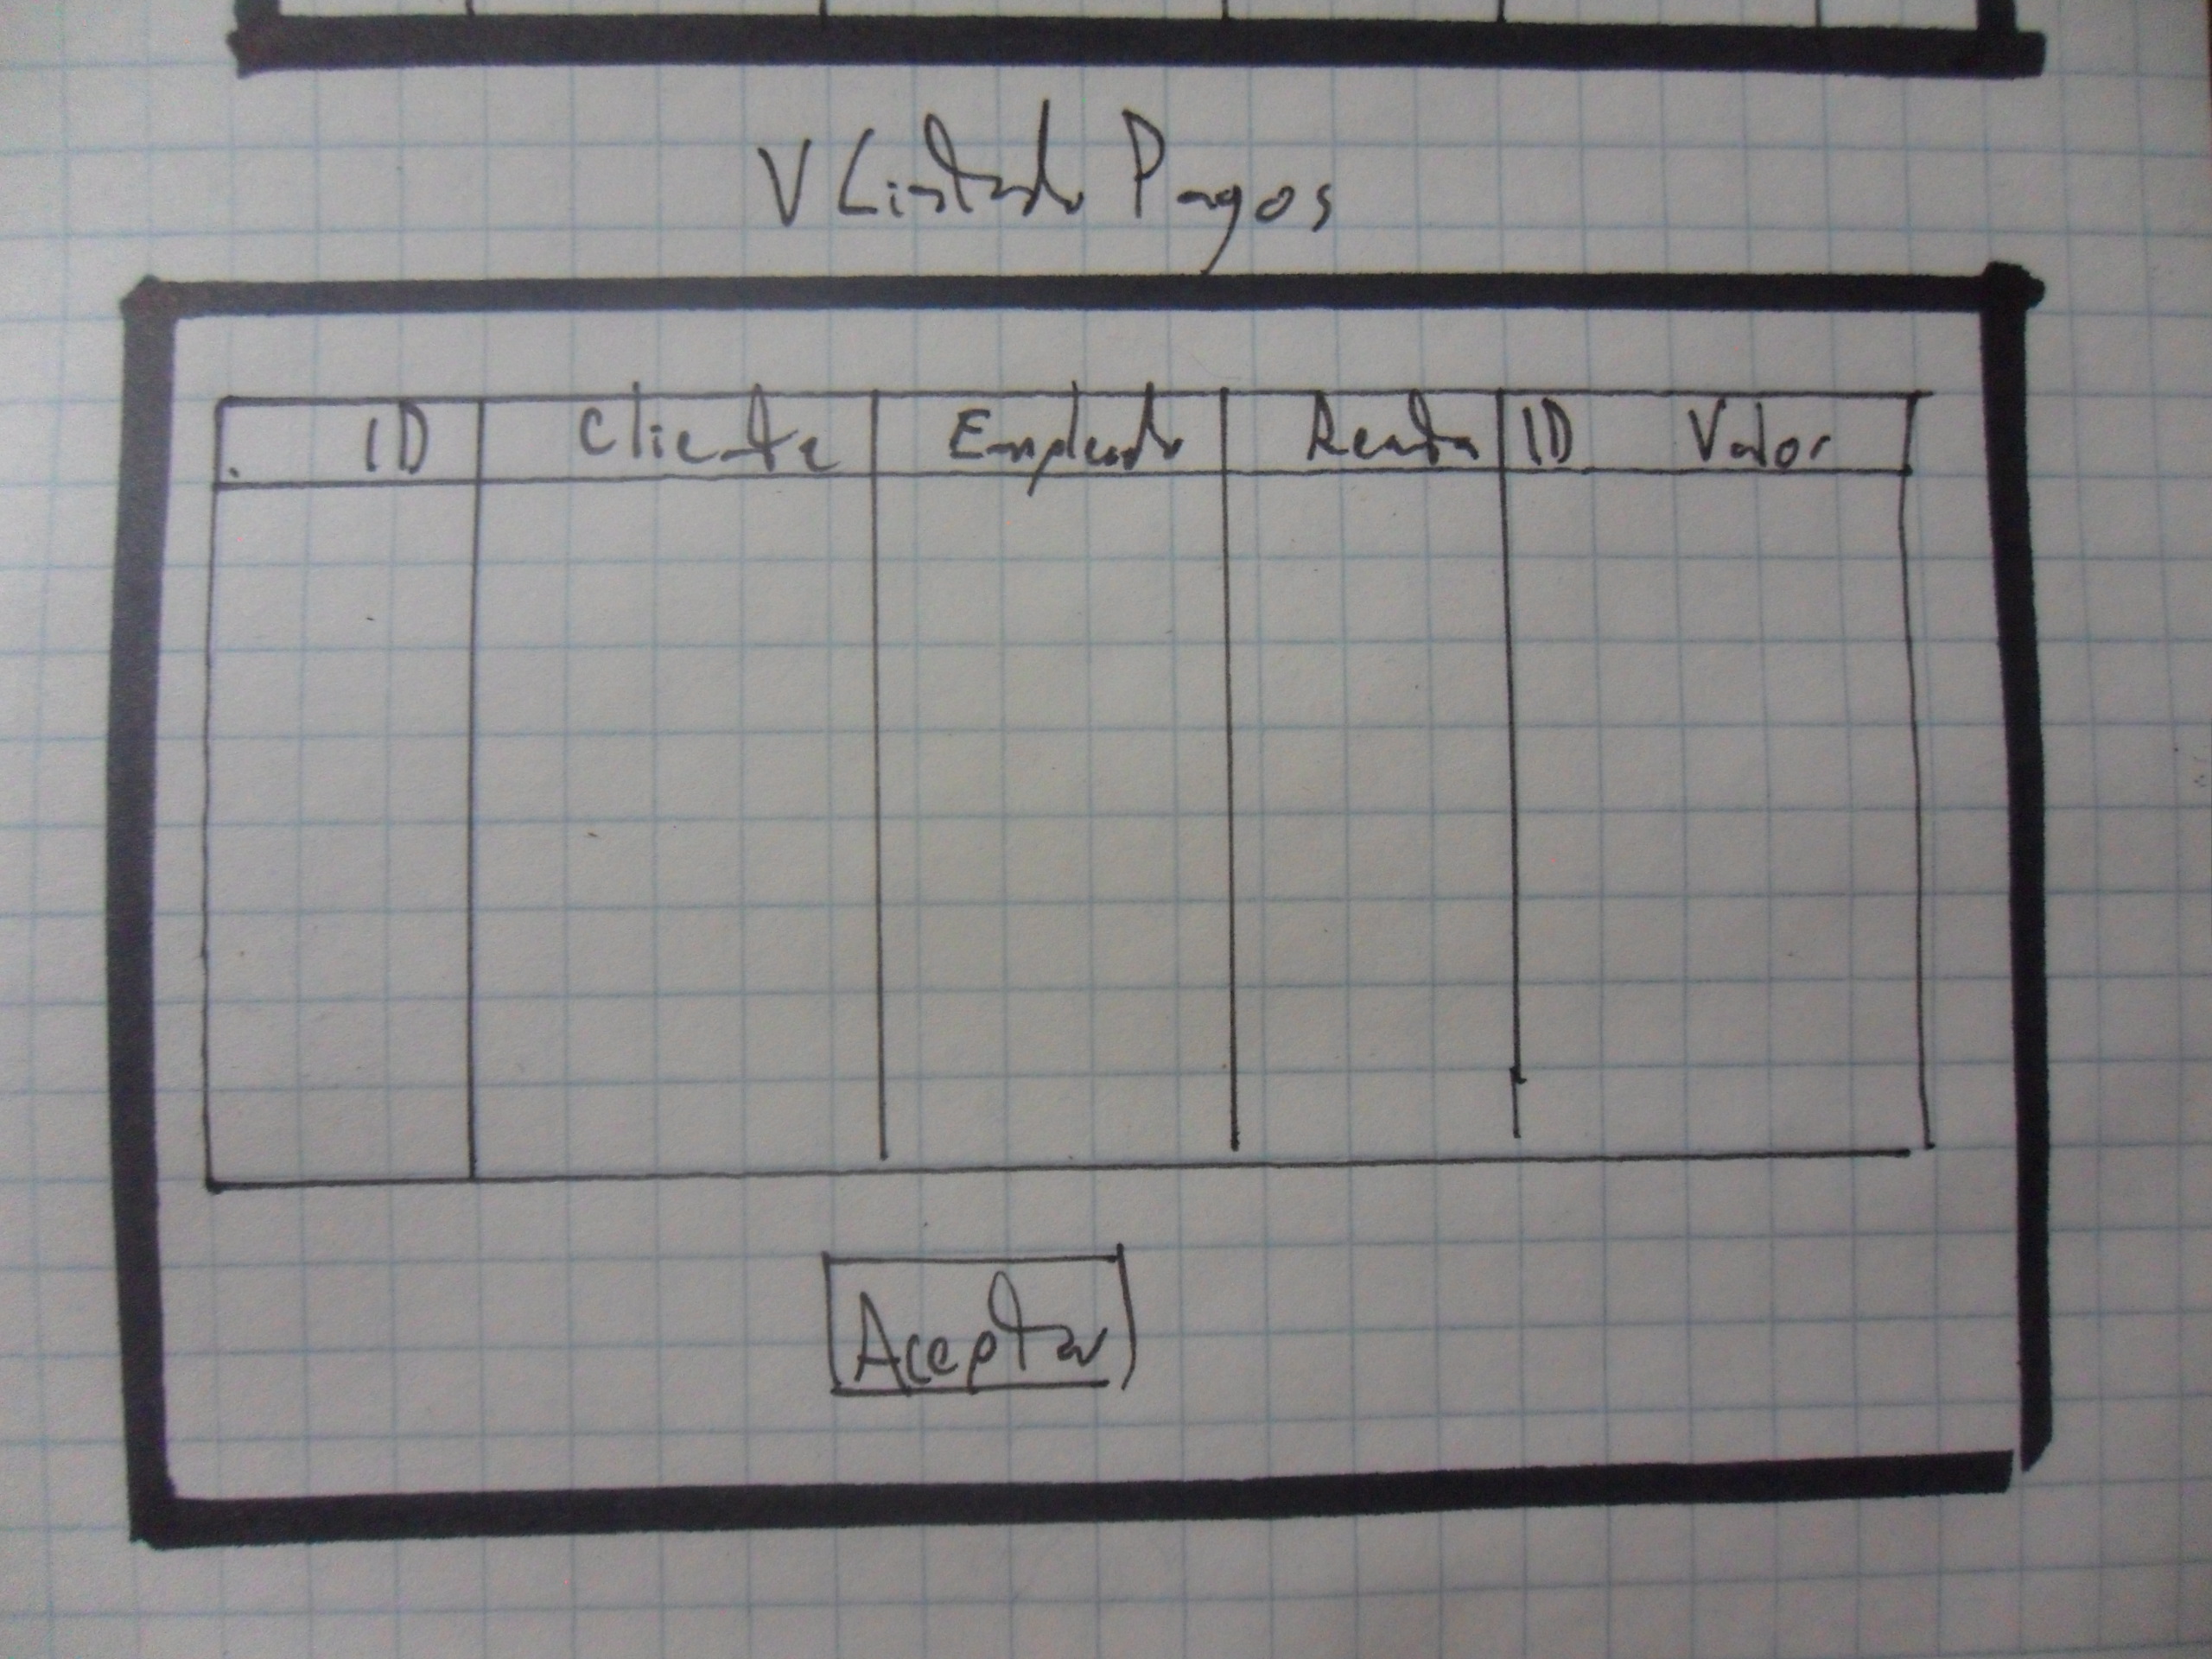 V Listado Pagos
ID Cliente Empleado Renta ID Valor
Aceptar